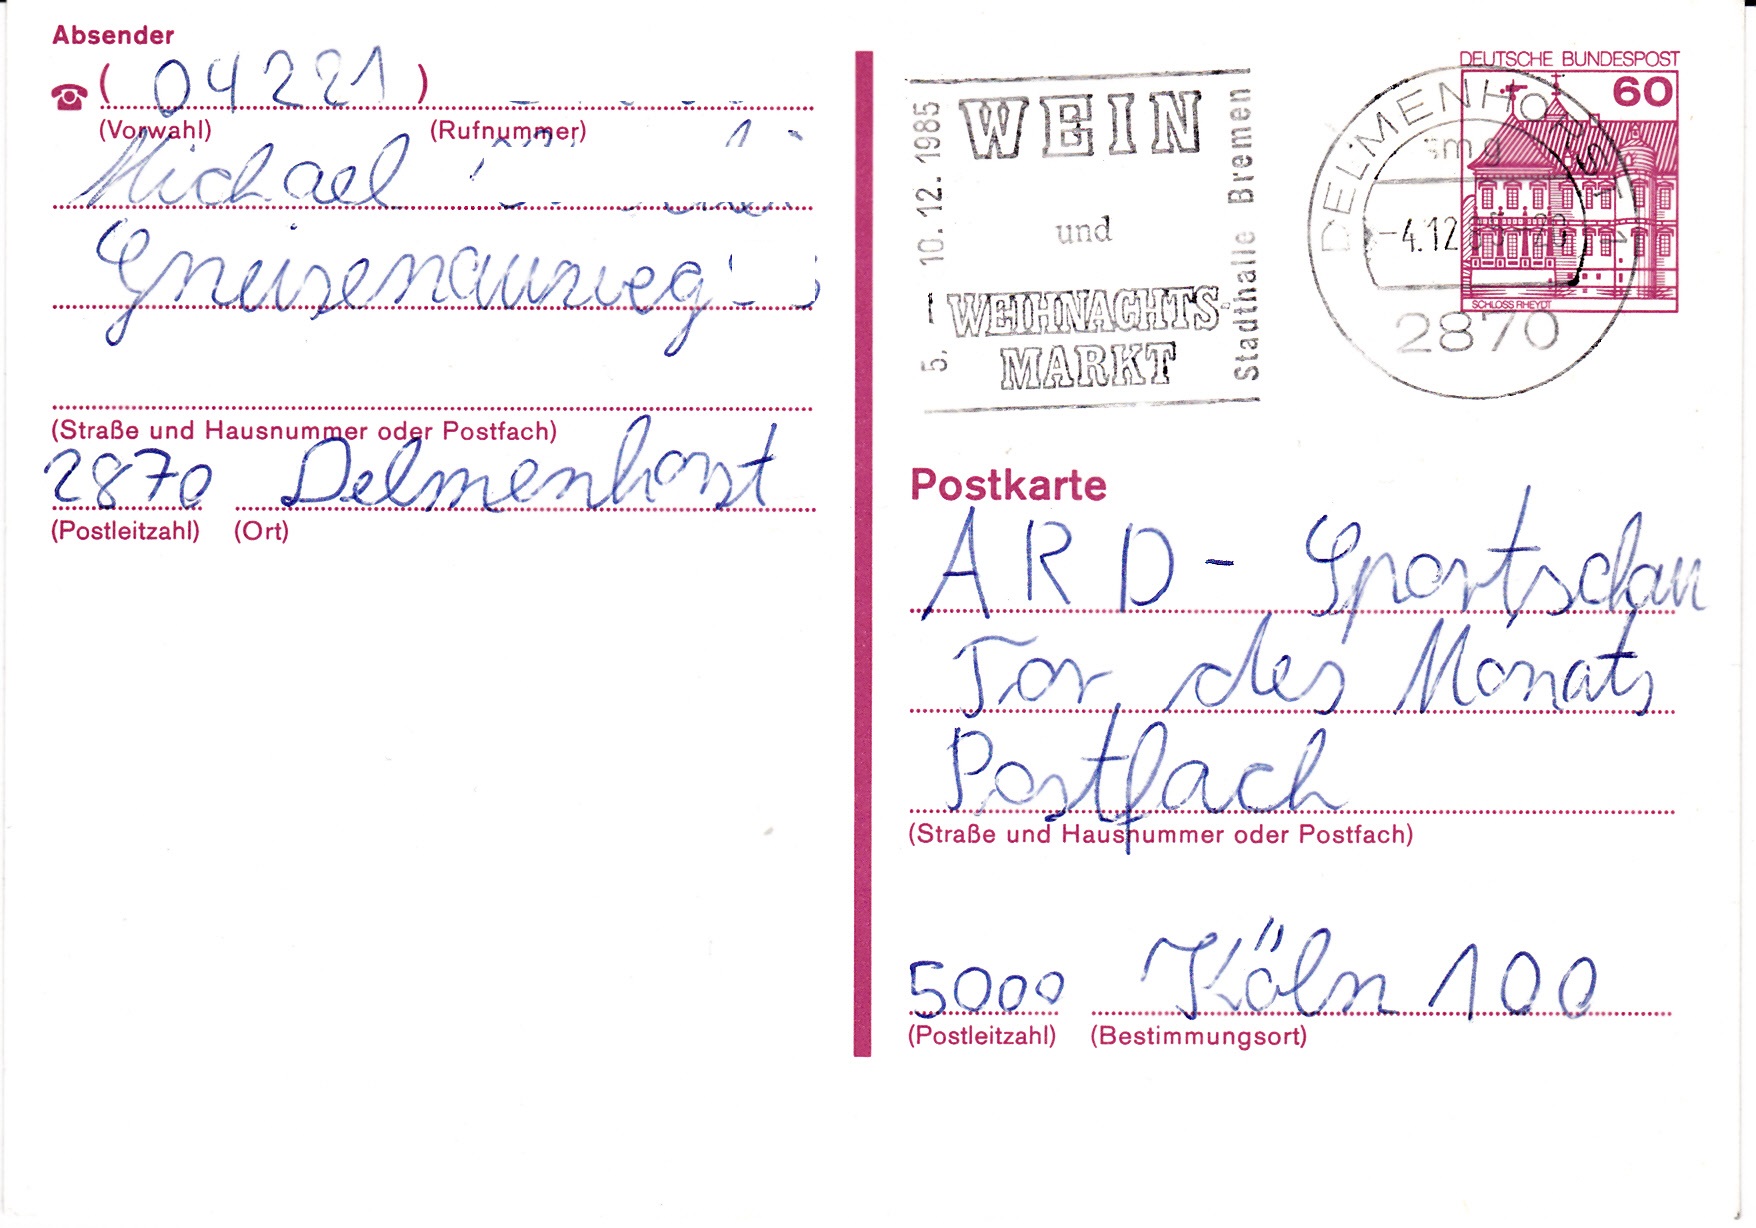 Absender
( 04221 )
(Vorwahl) (Rufnummer)
Michael
Gneisenauweg
(Straße und Hausnummer oder Postfach)
2870 Delmenhorst
(Postleitzahl) (Ort)
5. – 10. 12. 1985
WEIN
und
WEIHNACHTS-
MARKT
Stadthalle Bremen
DELMENHORST 1
smg
-4.12
2870
DEUTSCHE BUNDESPOST
60
SCHLOSS RHEYDT
Postkarte
ARD - Sportschau
Tor des Monats
Postfach
(Straße und Hausnummer oder Postfach)
5000 Köln 100
(Postleitzahl) (Bestimmungsort)